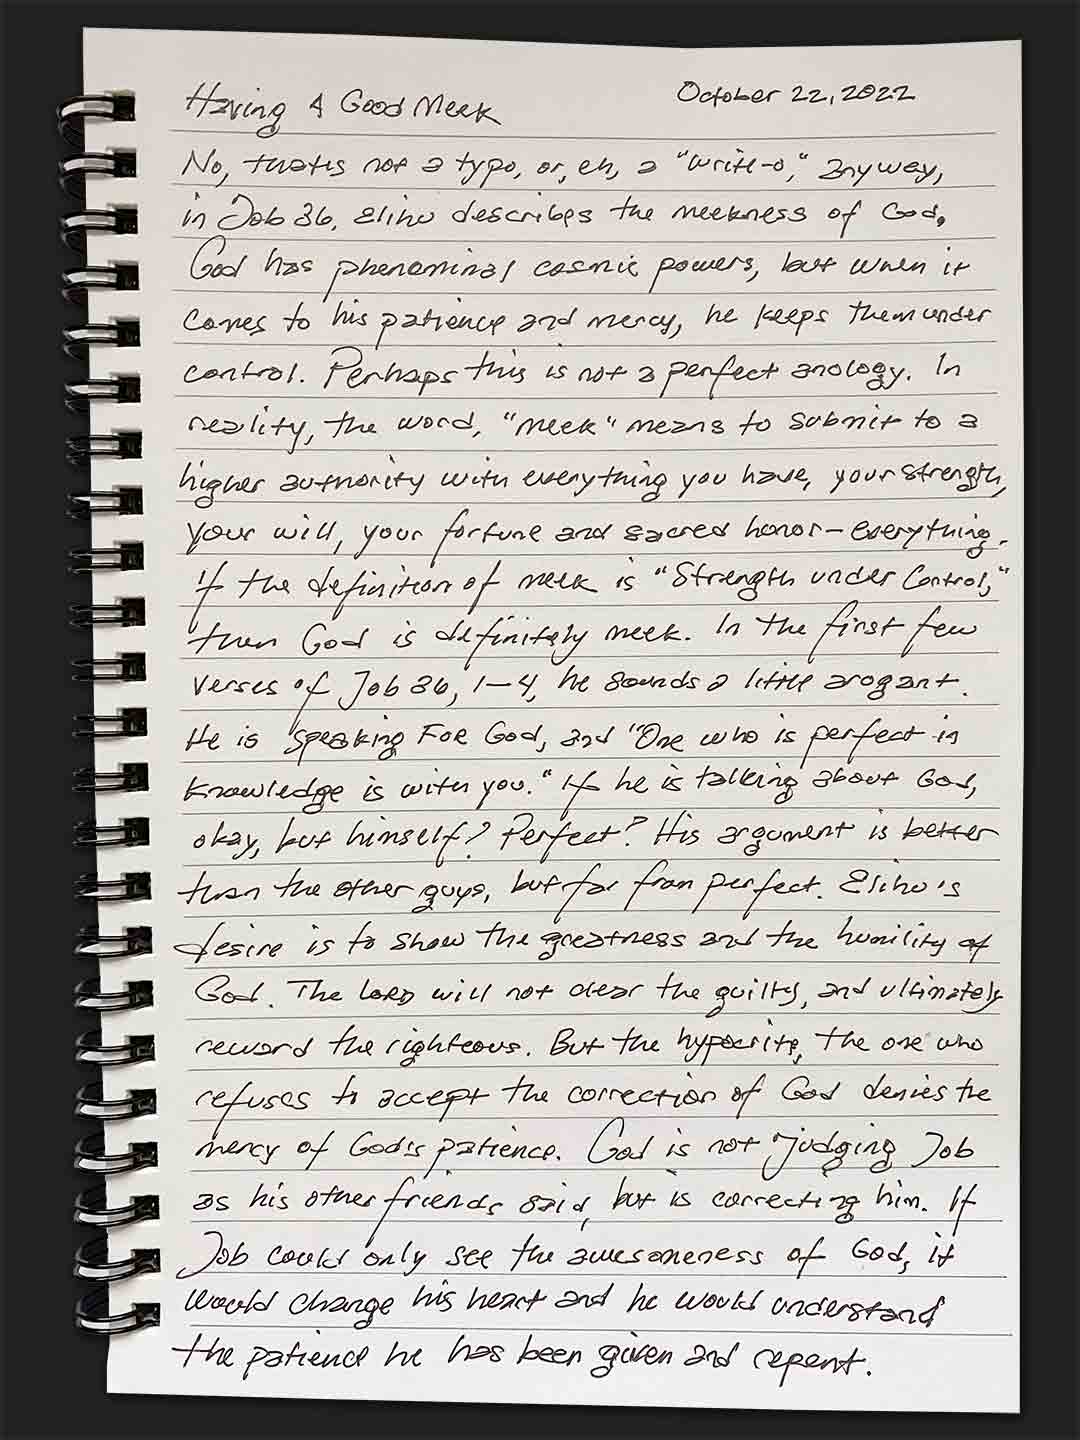 Having A Good Meek
October 22, 2022
No, that's not a typo, or, eh, a "write-o," anyway,
in Job 36, Elihu describes the meekness of God.
God has phenominal cosmic powers, but when it
comes to his patience and mercy, he keeps them under
control. Perhaps this is not a perfect anology. In
reality, the word, "meek" means to submit to a
higher authority with everything you have, your strength,
your will, your fortune and sacred honor—everything.
If the definition of meek is "Strength under Control,"
then God is definitely meek. In the first few
verses of Job 36, 1–4, he sounds a little arogant.
He is speaking For God, and "One who is perfect in
knowledge is with you." If he is talking about God,
okay, but himself? Perfect? His argument is better
than the other guys, but far from perfect. Elihu's
desire is to show the greatness and the humility of
God. The LORD will not clear the guilty, and ultimately
reward the righteous. But the hypocrite, the one who
refuses to accept the correction of God denies the
mercy of God's patience. God is not judging Job
as his other friends said, but is correcting him. If
Job could only see the awesomeness of God, it
would change his heart and he would understand
the patience he has been given and repent.